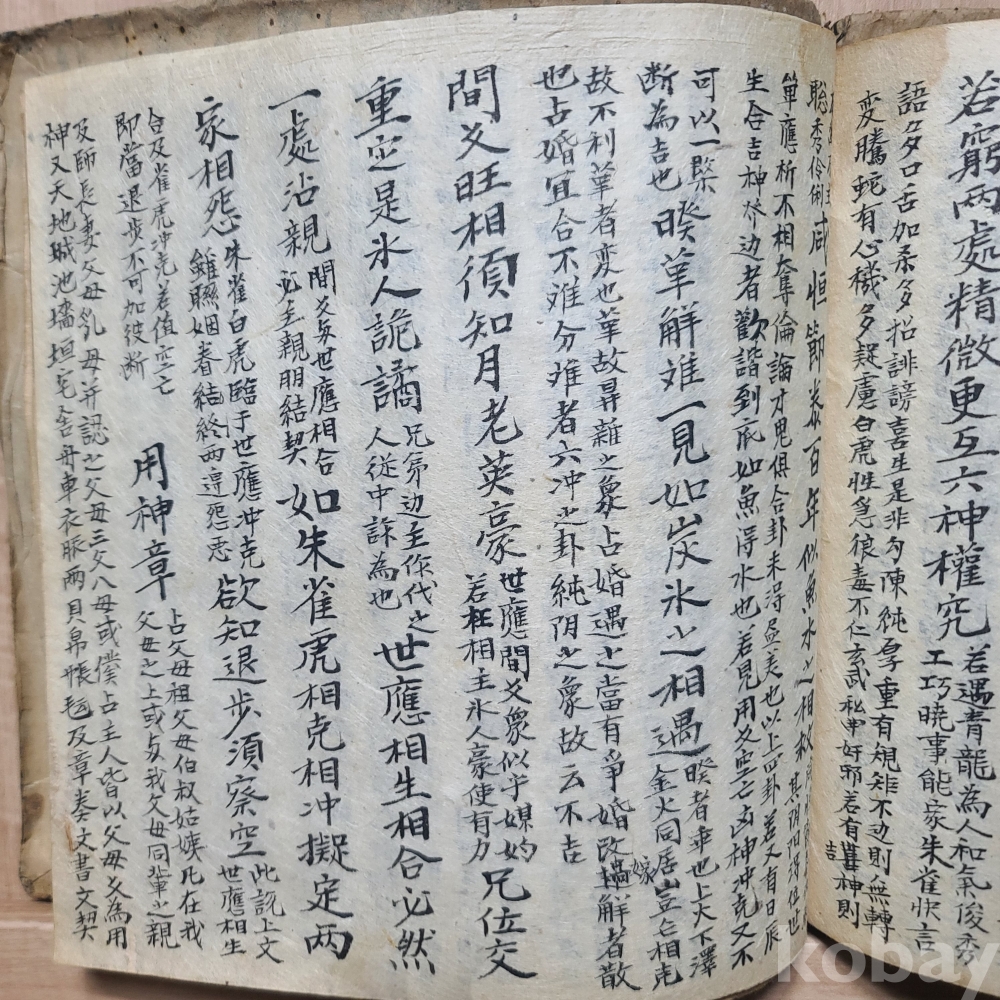 若窮兩處精微更互六神權究
若遇青龍為人和氣俊秀
工巧曉事能家朱雀快言
語多口舌加柔多招誹謗喜生是非勾陳純厚重有規矩不边則無轉
変騰蛇有心機多疑慮白虎性急狼毒不仁玄武私申奸邪若有吉神則
聡秀伶俐
咸恒節泰百年似魚水之相
箄應析不相奪倫論才鬼俱合卦未淂尽美也以上四卦若又有日辰
生合吉神於边者歡諧到底如魚淂水也若見用爻空亡凶神冲克又不
可以一槩
断為吉也
暌革解难一見如炭氷之相遇
暌者乖也上火下澤
金火同居豈亡相克
故不利革者変也革故昇雜之象占婚遇之當有爭婚改嫁解者散
也占婚宜合不难分难者六冲之卦純阴之象故云不吉
間爻旺相須知月老英豪
世應間爻象似乎媒妁
若枉相主氷人豪使有力
兄位交
重定是氷人詭譎
兄弟边主作伐之
人從中詐為也
世應相生相合必然
一處沾親
間爻与世應相合
必主親朋結契
如朱雀虎相克相冲擬定兩
家相怨
朱雀白虎臨于世應冲克
雖聯姻眷結終两邉怨恶
欲知退步須察空
此説上文
世應相生
合及雀虎冲克若值空亡
即當退步不可加彼断
用神章
占父母祖父母伯叔姑姨凡在我
父母之上或与我父母同輩之親
及師長妻父母乳母并認之父母三父八母或僕占主人皆以父母爻為用
神又天地城池墻垣宅舍舟車衣服兩貝帛帳毡及章奏文書文契
kobay